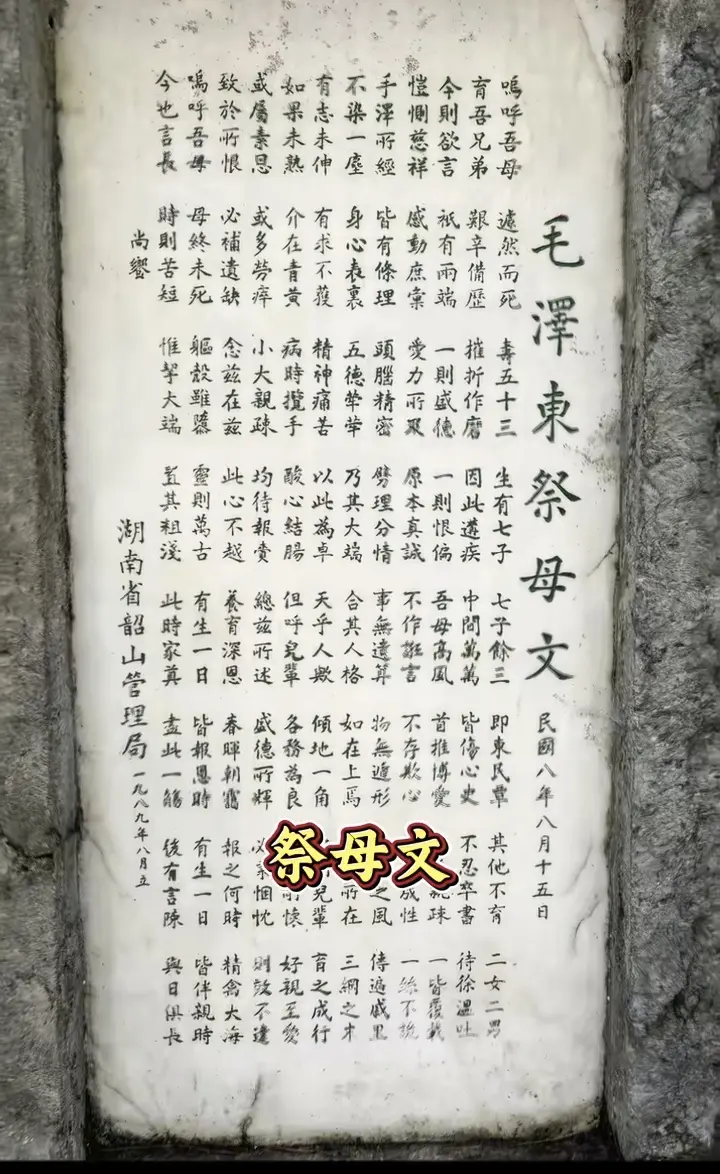 毛澤東祭母文 民國八年八月十五日
嗚呼吾母 遽然而死 壽五十三 生有七子 七子餘三 即東民覃 其他不育 二女二男
育吾兄弟 艱辛備歷 摧折作磨 因此遘疾 中間萬萬 皆傷心史 不忍卒書 待徐溫吐
今則欲言 祇有兩端 一則盛德 一則恨偏 吾母高風 首推博愛 疎 一皆覆載
愷惻慈祥 感動庶彙 愛力所聚 原本真誠 不作誑言 不存欺心 成性 一絲不詭
手澤所經 皆有條理 頭腦精密 劈理分情 事無遺算 物無遁形 之風 傳遍戚里
不染一塵 身心表裏 五德犖犖 乃其大端 合其人格 如在上焉 所在 三綱之末
有志未伸 有求不獲 精神痛苦 以此為卓 天乎人歟 傾地一角 兒輩 育之成行
如果未熟 介在青黃 病時攬手 酸心結腸 但呼兒輩 各務為良 所懷 好親至愛
或屬素恩 或多勞瘁 小大親疎 均待報賚 總茲所述 盛德所輝 必秉悃忱 則效不違
致於所恨 必補遺缺 念茲在茲 此心不越 養育深恩 春暉朝靄 報之何時 精禽大海
嗚呼吾母 母終未死 軀殼雖隳 靈則萬古 有生一日 皆報恩時 有生一日 皆伴親時
今也言長 時則苦短 惟挈大端 置其粗淺 此時家奠 盡此一觴 後有言陳 與日俱長
尚饗
湖南省韶山管理局 一九八九年八月立
祭母文